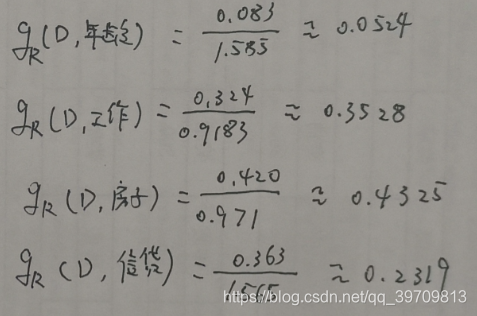 g_R(D,年龄) = 0.083/1.585 ≈ 0.0524
g_R(D,工作) = 0.324/0.9183 ≈ 0.3528
g_R(D,房子) = 0.420/0.971 ≈ 0.4325
g_R(D,信贷) = 0.363/ ≈ 0.2319
https://blog.csdn.net/qq_39709813